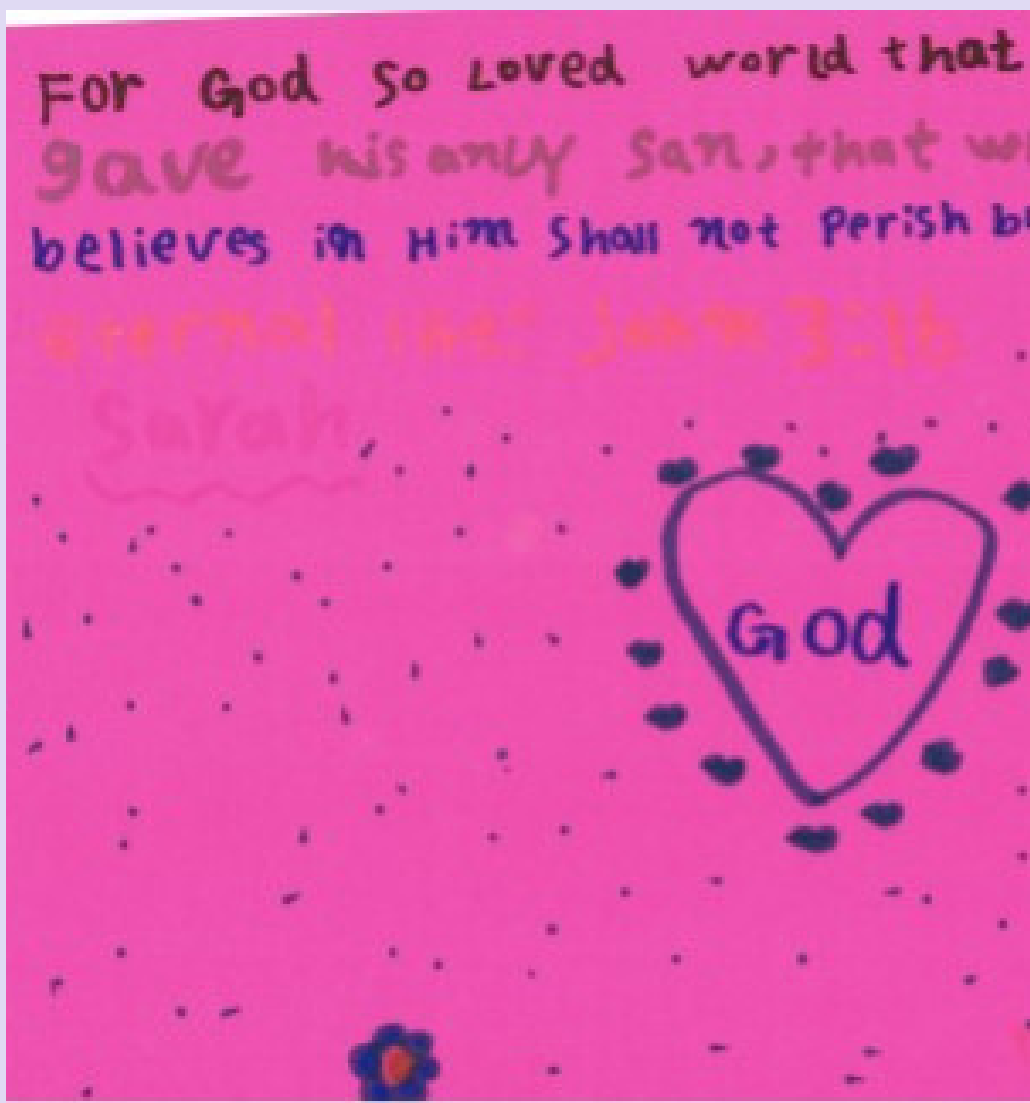 For God So Loved world that
gave his anly San, that
believes in Him Shall not Perish
eternal life: John 3:16
Sarah
God